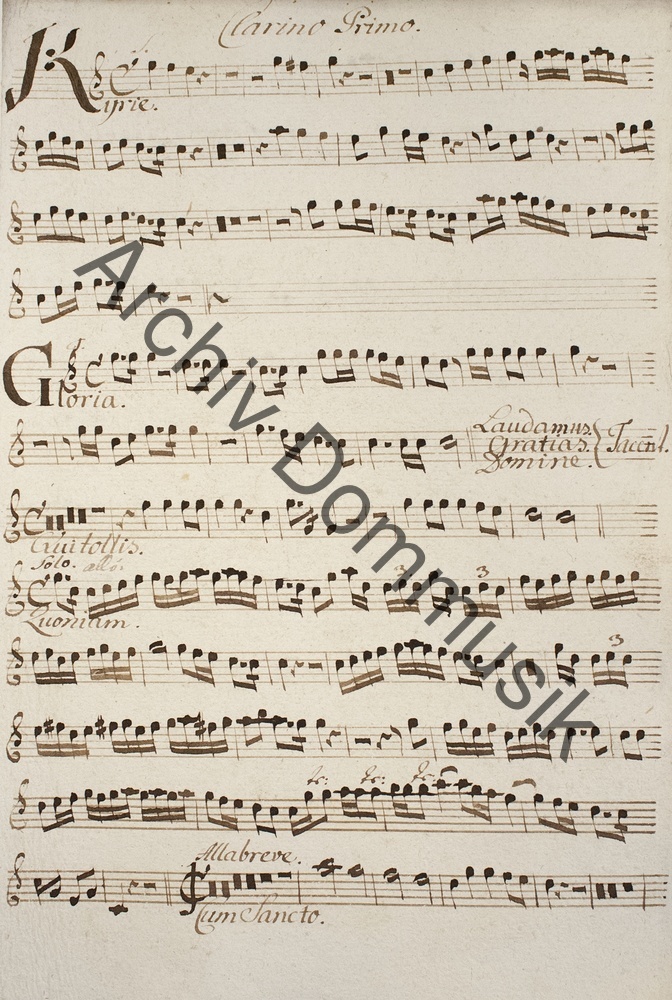 Clarino Primo.
Kyrie.
Gloria.
Laudamus
Gratias.
Domine.
Tacent.
Qui tollis.
Solo. allo:
Quoniam.
3
3
3
tr: tr: tr:
Allabreve.
Cum Sancto.
Archiv Dommusik